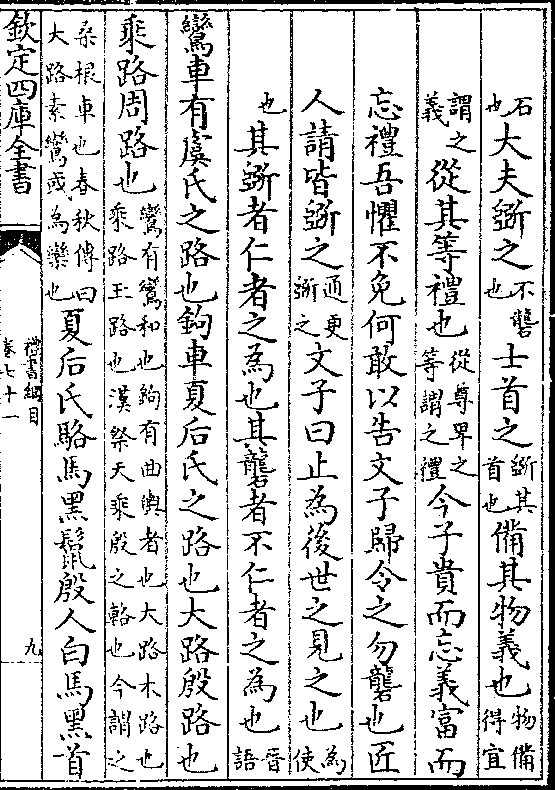 石也大夫斵之不礱也士首之斵其首也備其物義也物備得宜
謂之義從其等禮也從尊卑之等謂之禮今子貴而忘義富而
忘禮吾懼不免何敢以告文子歸令之勿礱也匠
人請皆斵之通更斵之文子曰止為後世之見之也為使
也其斵者仁者之為也其礱者不仁者之為也晉語
鸞車有虞氏之路也鉤車夏后氏之路也大路殷路也
乘路周路也鸞有鸞和也鉤有曲輿者也大路木路也乘路玉路也漢祭天乘殷之輅也今謂之
桑根車也春秋傳曰大路素鸞或為欒也夏后氏駱馬黑鬛殷人白馬黑首
欽定四庫全書
禮書綱目
卷七十一
九